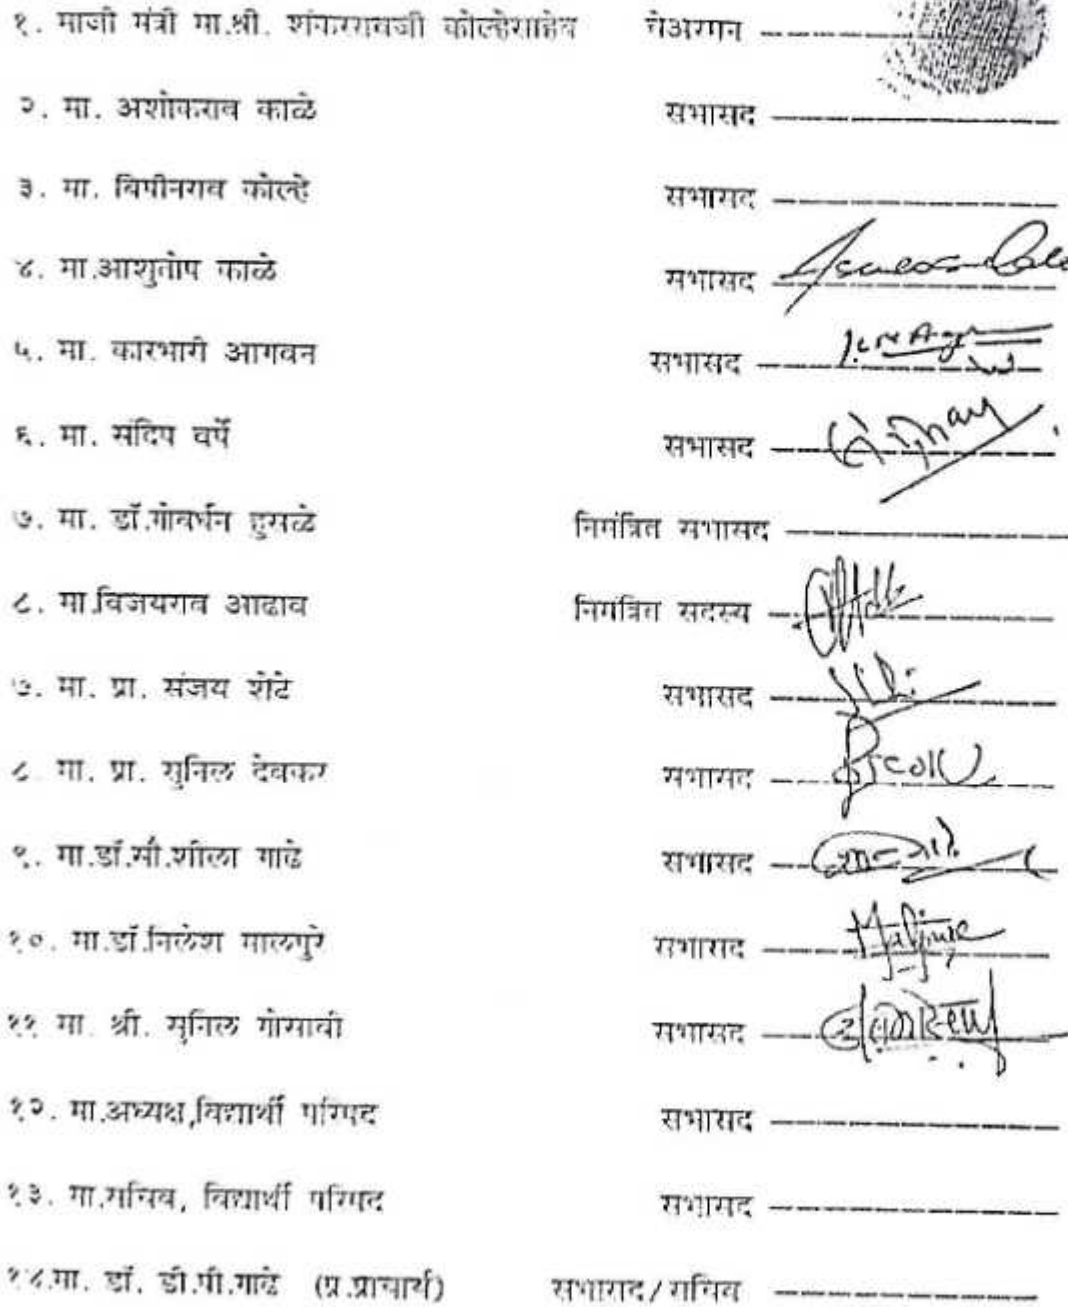 १. माजी मंत्री मा.श्री. शंकररावजी कोल्हेसाहेब चेअरमन
२. मा. अशोकराव काळे सभासद
३. मा. बिपीनराव कोल्हे सभासद
४. मा.आशुतोष काळे सभासद
५. मा. कारभारी आगवन सभासद
६. मा. संदिप वर्पे सभासद
७. मा. डॉ.गोवर्धन हुसळे निमंत्रित सभासद
८. मा.विजयराव आढाव निमंत्रित सदस्य
७. मा. प्रा. संजय शेटे सभासद
८. मा. प्रा. सुनिल देवकर सभासद
९. मा.डॉ.सौ.शीला गाढे सभासद
१०. मा.डॉ.निलेश मालपुरे सभासद Malpure
११ मा. श्री. सुनिल गोसावी सभासद
१२. मा.अध्यक्ष,विद्यार्थी परिषद सभासद
१३. मा.सचिव, विद्यार्थी परिषद सभासद
१४.मा. डॉ. डी.पी.गाढे (प्र.प्राचार्य) सभासद/सचिव